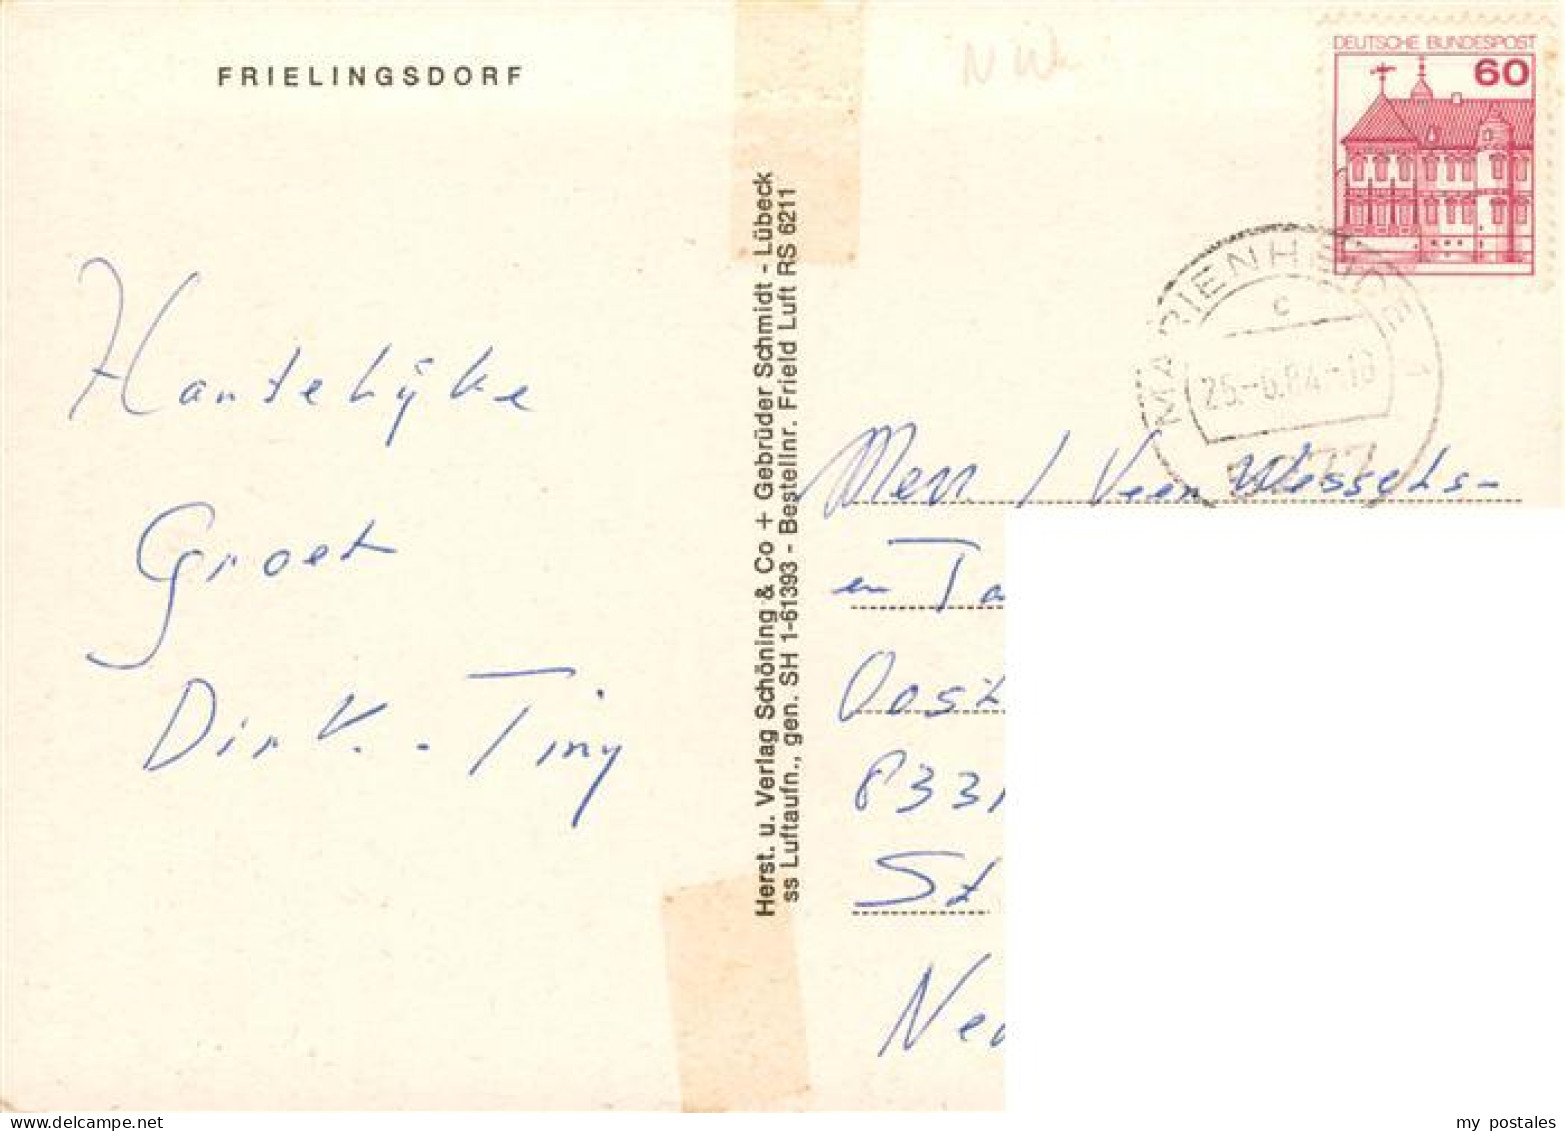 FRIELINGSDORF
DEUTSCHE BUNDESPOST
60
MARIENHEIDE 1
c
25.-6.84-10
5277
Hartelijke
Groet
Dirk. - Tiny
Herst. u. Verlag Schöning & Co + Gebrüder Schmidt - Lübeck
ss Luftaufn., gen. SH 1-61393 - Bestellnr. Frield Luft RS 6211
Wessels-
en Ta
Oost
8331
St
Ne
delcampe.net
my postales